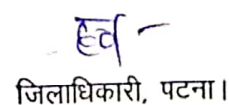 ह०/-
जिलाधिकारी, पटना।